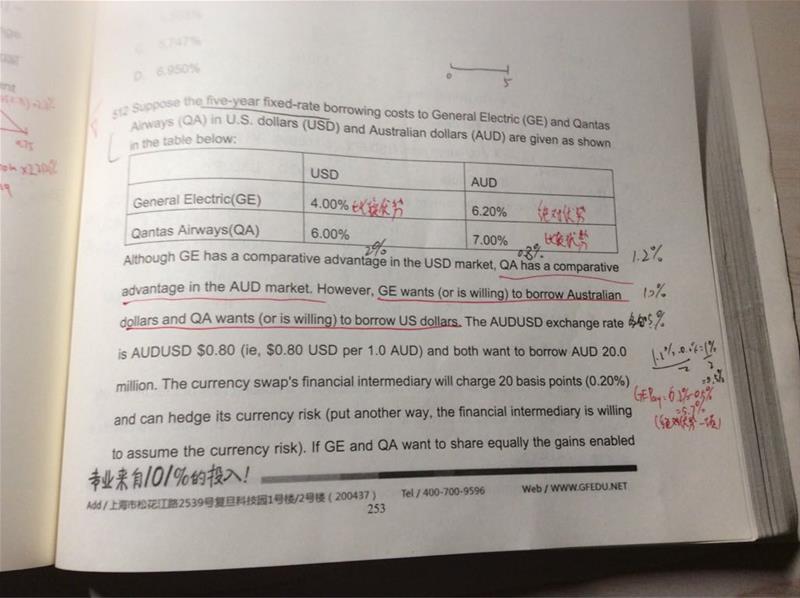 C. 5.747%
D. 6.950%
0 5
512 Suppose the five-year fixed-rate borrowing costs to General Electric (GE) and Qantas
Airways (QA) in U.S. dollars (USD) and Australian dollars (AUD) are given as shown
in the table below:
USD AUD
General Electric(GE) 4.00% 比较优势 6.20% 绝对优势
Qantas Airways(QA) 6.00% 7.00% 比较优势
2% 0.8% 1.2%
Although GE has a comparative advantage in the USD market, QA has a comparative
advantage in the AUD market. However, GE wants (or is willing) to borrow Australian
dollars and QA wants (or is willing) to borrow US dollars. The AUDUSD exchange rate
is AUDUSD $0.80 (ie, $0.80 USD per 1.0 AUD) and both want to borrow AUD 20.0
million. The currency swap's financial intermediary will charge 20 basis points (0.20%)
and can hedge its currency risk (put another way, the financial intermediary is willing
to assume the currency risk). If GE and QA want to share equally the gains enabled
=0.5%
GE Pay:
=5.7%
专业来自101%的投入!
Add / 上海市松花江路2539号复旦科技园1号楼/2号楼（200437） Tel / 400-700-9596 Web / WWW.GFEDU.NET
253